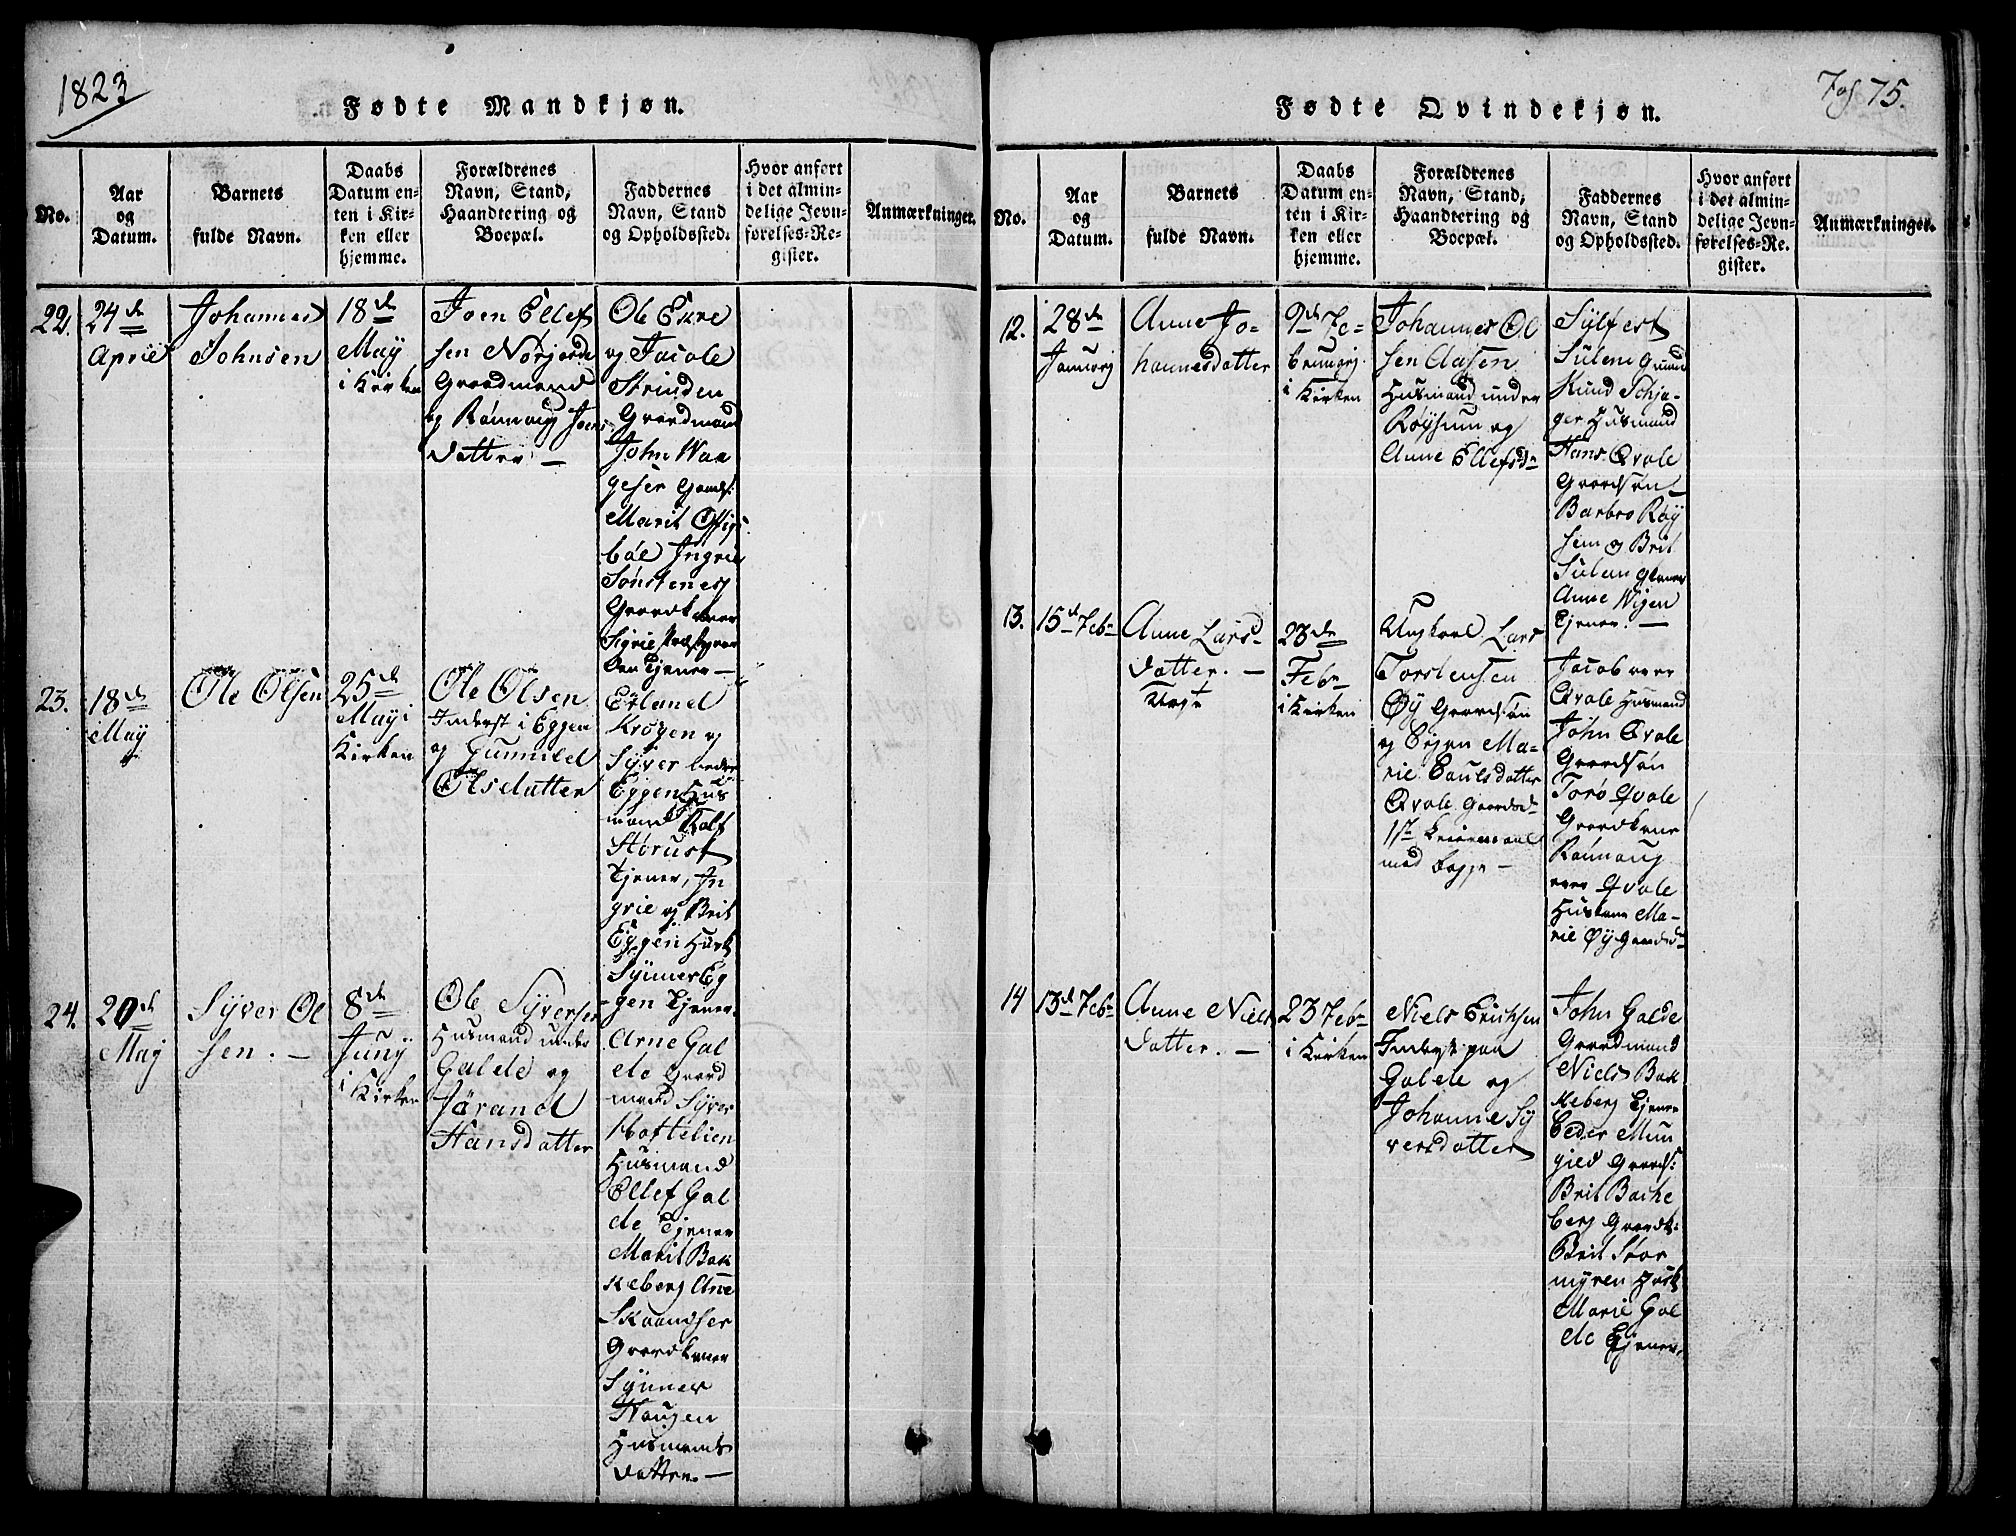 1823
Fødte Mandkjøn.
No.
Aar
og
Datum.
Barnets
fulde Navn.
Daabs
Datum en-
ten i Kir-
ken eller
hjemme.
Forældrenes
Navn, Stand,
Haandtering og
Boepæl.
Faddernes
Navn, Stand
og Opholdssted.
Hvor anført
i det almin-
delige Jevn-
førelses-Re-
gister.
Anmærkninger.
22.
24de
April
Johannes
Johnsen
18de
May
i Kirken
Joen Ellef
sen Nørjorde
Gaardmand
og Rønnaug Joens
datter —
Ole Ekre
og Jacob
Strinden
Gaardmænd
John Waa
geser Gaards:
Marit
bøl Ingrie
Sønstenes
Gaardkoner
Sigrie
Tjener —
23.
18de
May
Ole Olsen
25de
May i
Kirken
Ole Olsen
Inderst i Eggen
og Gunnild
Olsdatter
Erland
Krogen og
Syver nedre
Eggen Hus
mænd Rolf
Størust
Tjener, In
grie og Brit
Eggen Husk
Synner Eg
gen Tjener
24.
20de
May
Syver Ol
sen. —
8de
Juny
i Kirken
Ole Syversen
Husmand under
Galde og
Jørand
Hansdatter
Arne Gal
de Gaard
mand Syver
Hoftelien
Husmand
Ellef Gal
de Tjener
Marit Bak
keberg Ane
Skaandser
Gaardkoner
Synner
Haugen
Husmands
datter. —
Fol 75.
Fødte Qvindekjøn.
No.
Aar
og
Datum.
Barnets
fulde Navn.
Daabs
Datum en-
ten i Kir-
ken eller
hjemme.
Forældrenes
Navn, Stand,
Haandtering og
Boepæl.
Faddernes
Navn, Stand
og Opholdssted.
Hvor anført
i det almin-
delige Jevn-
førelses-Re-
gister.
Anmærkninger.
12.
28de
Januarj
Anne Jo-
hannesdatter
9de Fe-
bruarj
i Kirken
Johannes Ol
sen Aasen
Husmand under
Røysum og
Anne Ellefsdr
Sylfest
Sulem
Knud Schja-
ger Husmand
Hans Qvale
Gaardsøn
Barbro Røy
sem og Brit
Sulem
Anne Wigen
Tjener. —
13.
15de Febr
Anne Lars-
datter. —
Uægte
23de
Febr
i Kirken
Ungkarl Lars
Torstensen
Øy Gaardsøn
og Pigen Ma-
rie Paulsdatter
Qvale Gaardsd
1ste Leiermaal
med begge —
Jacob
Qvale Husmand
John Qvale
Gaardsøn
Torø Qvale
Gaardkone
Rønnaug
Qvale
Huskone Ma-
rie Øy Gaardsd
14
13de Febr
Anne Niels
datter. —
23 Febr
i Kirken
Niels Erichsen
Inderst paa
Galde og
Johanne Sy
versdatter
John Galde
Gaardmand
Niels Bak
keberg Tjener
Peder Mun
gild Gaards:
Brit Bache
berg Gaardk:
Brit Stor
myren Husk
Marie Gal
de Tjener.